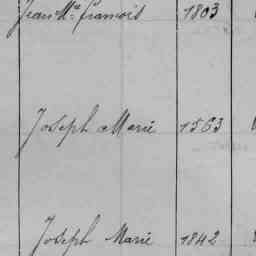 Jean Mie françois 1803
Joseph Marie 1563
Joseph Marie 1842